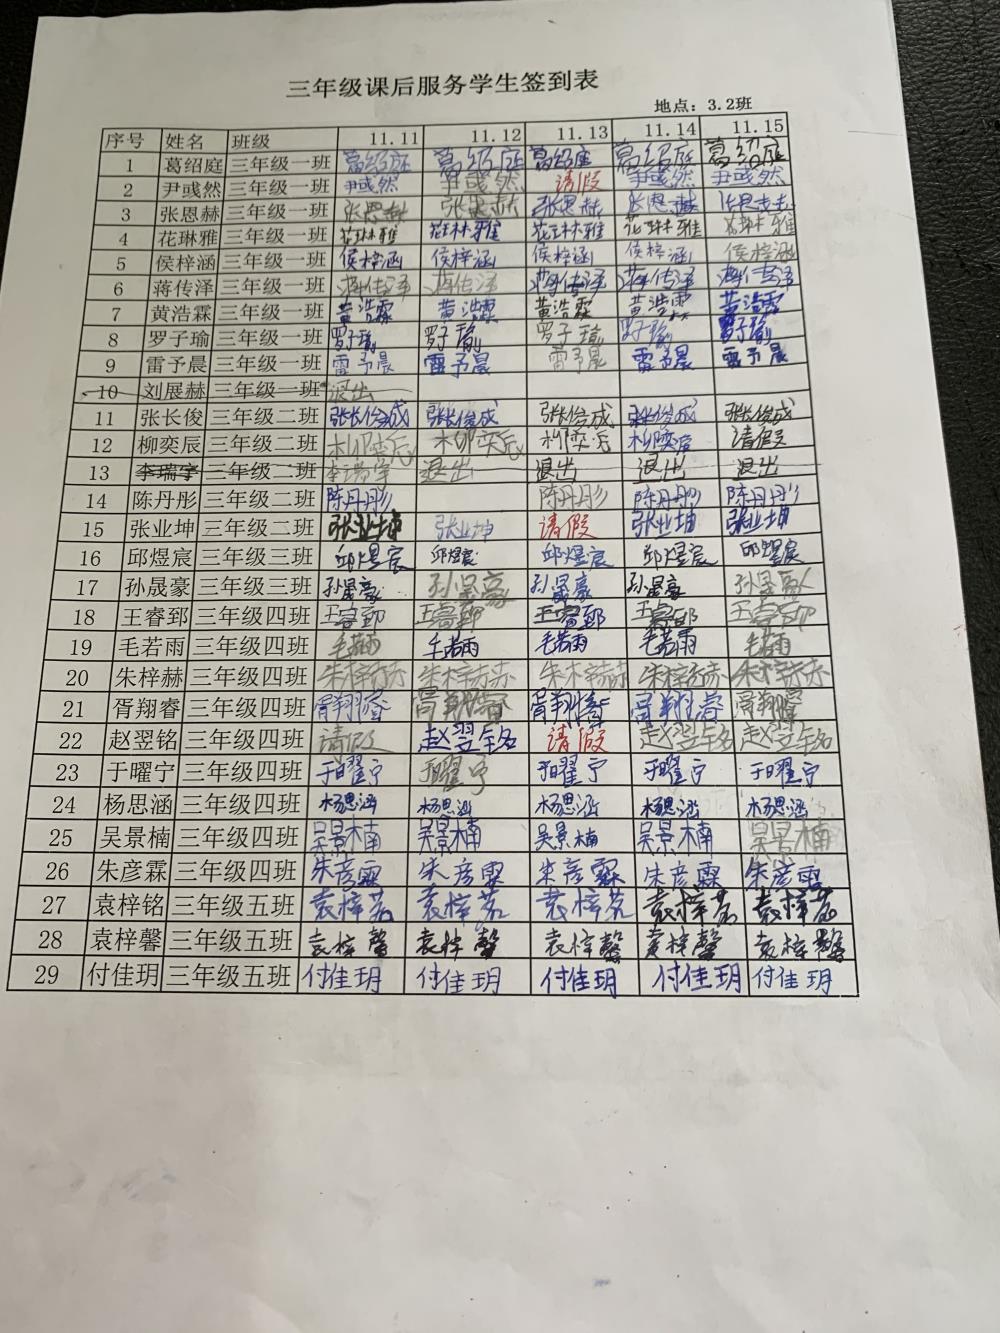 三年级课后服务学生签到表
地点：3.2班
序号 姓名 班级 11.11 11.12 11.13 11.14 11.15
1 葛绍庭 三年级一班 葛绍庭 葛绍庭 葛绍庭 葛绍庭 葛绍庭
2 尹彧然 三年级一班 尹彧然 尹彧然 请假 尹彧然 尹彧然
3 张恩赫 三年级一班 张恩赫 张恩赫 张恩赫 张恩赫 张恩赫
4 花琳雅 三年级一班 花琳雅 花琳雅 花琳雅 花琳雅 花琳雅
5 侯梓涵 三年级一班 侯梓涵 侯梓涵 侯梓涵 侯梓涵 侯梓涵
6 蒋传泽 三年级一班 蒋传泽 蒋传泽 蒋传泽 蒋传泽 蒋传泽
7 黄浩霖 三年级一班 黄浩霖 黄浩霖 黄浩霖 黄浩霖 黄浩霖
8 罗子瑜 三年级一班 罗子瑜 罗子瑜 罗子瑜 罗子瑜 罗子瑜
9 雷予晨 三年级一班 雷予晨 雷予晨 雷予晨 雷予晨 雷予晨
10 刘展赫 三年级一班 退出
11 张长俊 三年级二班 张长俊成 张长俊成 张长俊成 张长俊成 张长俊成
12 柳奕辰 三年级二班 柳奕辰 柳奕辰 柳奕辰 柳奕辰 请假
13 李瑞宇 三年级二班 李瑞宇 退出 退出 退出 退出
14 陈丹彤 三年级二班 陈丹彤 陈丹彤 陈丹彤 陈丹彤
15 张业坤 三年级二班 张业坤 张业坤 请假 张业坤 张业坤
16 邱煜宸 三年级三班 邱煜宸 邱煜宸 邱煜宸 邱煜宸 邱煜宸
17 孙晟豪 三年级三班 孙晟豪 孙晟豪 孙晟豪 孙晟豪 孙晟豪
18 王睿郅 三年级四班 王睿郅 王睿郅 王睿郅 王睿郅 王睿郅
19 毛若雨 三年级四班 毛若雨 毛若雨 毛若雨 毛若雨 毛若雨
20 朱梓赫 三年级四班 朱梓赫 朱梓赫 朱梓赫 朱梓赫 朱梓赫
21 胥翔睿 三年级四班 胥翔睿 胥翔睿 胥翔睿 胥翔睿 胥翔睿
22 赵翌铭 三年级四班 请假 赵翌铭 请假 赵翌铭 赵翌铭
23 于曜宁 三年级四班 于曜宁 于曜宁 于曜宁 于曜宁 于曜宁
24 杨思涵 三年级四班 杨思涵 杨思涵 杨思涵 杨思涵 杨思涵
25 吴景楠 三年级四班 吴景楠 吴景楠 吴景楠 吴景楠 吴景楠
26 朱彦霖 三年级四班 朱彦霖 朱彦霖 朱彦霖 朱彦霖 朱彦霖
27 袁梓铭 三年级五班 袁梓茗 袁梓茗 袁梓茗 袁梓茗 袁梓茗
28 袁梓馨 三年级五班 袁梓馨 袁梓馨 袁梓馨 袁梓馨 袁梓馨
29 付佳玥 三年级五班 付佳玥 付佳玥 付佳玥 付佳玥 付佳玥